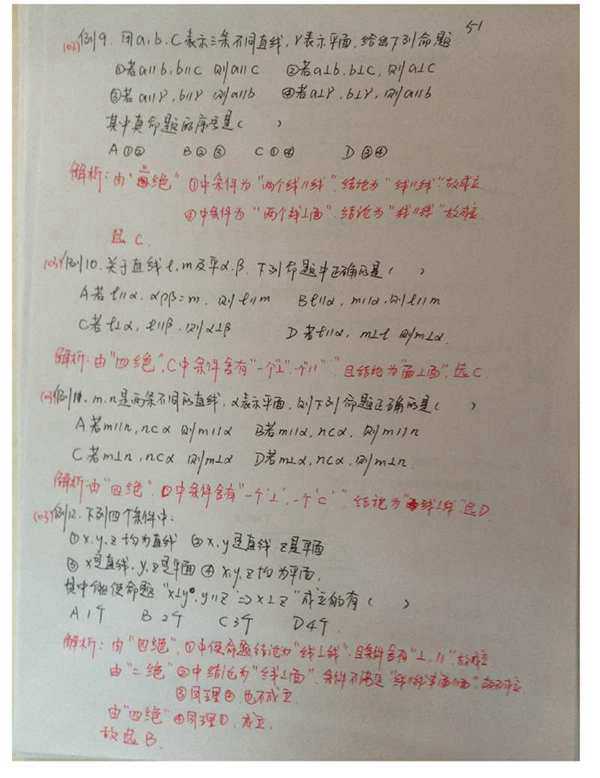 51
例9. 用a,b,c表示三条不同直线,γ表示平面,给出下列命题
①若a∥b,b∥c 则a∥c ②若a⊥b,b⊥c,则a⊥c
③若a∥γ,b∥γ 则a∥b ④若a⊥γ,b⊥γ,则a∥b
其中真命题的序号是( )
A ①② B ②③ C ①④ D ③④
解析:由"四绝" ①中条件为"两个线∥线",结论为"线∥线"故成立
④中条件为"两个线⊥面",结论为"线∥线"故成立
选C.
例10. 关于直线l,m及平α,β,下列命题中正确的是( )
A 若l∥α,α∩β=m,则l∥m B l∥α,m∥α,则l∥m
C 若l⊥α,l∥β,则α⊥β D 若l∥α,m⊥l 则m⊥α.
解析:由"四绝",C中条件含有"一个⊥,一个∥",且结论为"面⊥面",选C.
例11. m,n是两条不同的直线,α表示平面,则下列命题正确的是( )
A 若m∥n,n⊂α 则m∥α B 若m∥α,n⊂α,则m∥n
C 若m⊥n,n⊂α 则m⊥α D 若m⊥α,n⊂α,则m⊥n.
解析:由"四绝",D中条件含有"一个⊥,一个⊂",结论为"线⊥线"选D
例12. 下列四个条件中:
①x,y,z均为直线 ②x,y是直线 z是平面
③x是直线,y,z是平面 ④x,y,z均为平面,
其中能使命题"x⊥y,y∥z⇒x⊥z"成立的有( )
A 1个 B 2个 C 3个 D 4个.
解析:由"四绝",①中使命题结论为"线⊥线",且条件含有"⊥,∥"故成立
由"二绝"②中结论为"线⊥面",条件不满足
③同理②也不成立.
由"四绝"④同理①,成立.
故选B.